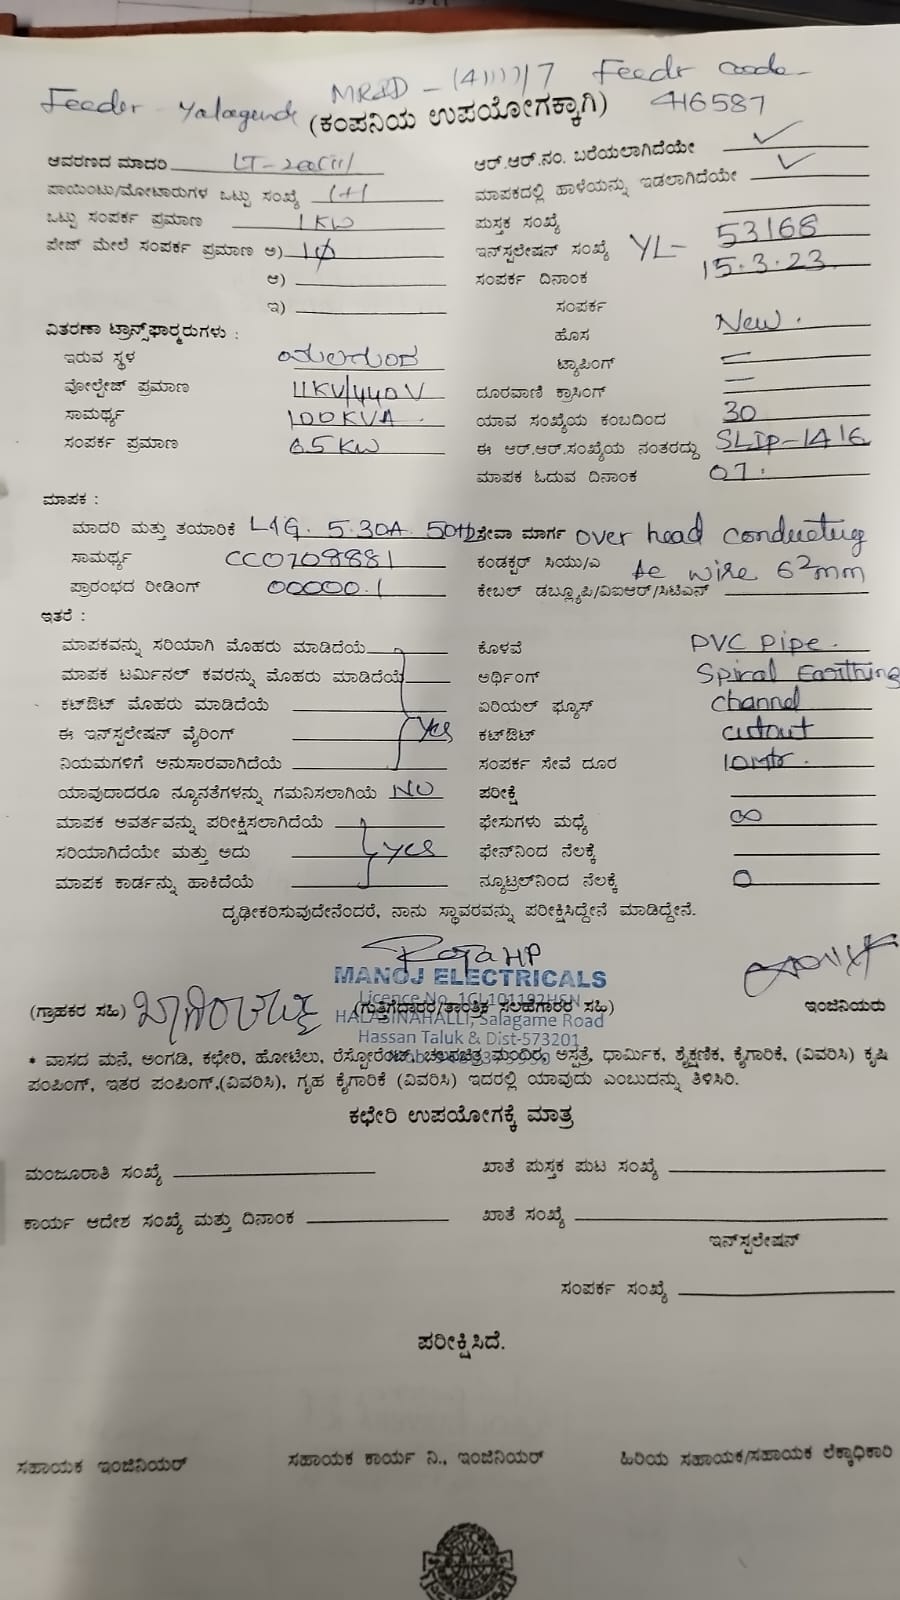 Feeder - Yalagunda MR&D - (4))))/7 Feedr code - 416587
(ಕಂಪನಿಯ ಉಪಯೋಗಕ್ಕಾಗಿ)
ಆವರಣದ ಮಾದರಿ LT-2a(iii)
ಪಾಯಿಂಟು/ಮೋಟಾರುಗಳ ಒಟ್ಟು ಸಂಖ್ಯೆ 1+1
ಒಟ್ಟು ಸಂಪರ್ಕ ಪ್ರಮಾಣ 1KW
ಪೇಜ್ ಮೇಲೆ ಸಂಪರ್ಕ ಪ್ರಮಾಣ ಅ) 1ϕ
ಆ)
ಇ)
ಆರ್.ಆರ್.ನಂ. ಬರೆಯಲಾಗಿದೆಯೇ ✓
ಮಾಪಕದಲ್ಲಿ ಹಾಳೆಯನ್ನು ಇಡಲಾಗಿದೆಯೇ ✓
ಪುಸ್ತಕ ಸಂಖ್ಯೆ
ಇನ್‌ಸ್ಟಲೇಷನ್ ಸಂಖ್ಯೆ YL- 53168
ಸಂಪರ್ಕ ದಿನಾಂಕ 15.3.23
ಸಂಪರ್ಕ
ಹೊಸ New.
ಟ್ಯಾಪಿಂಗ್ —
ದೂರವಾಣಿ ಕ್ರಾಸಿಂಗ್ —
ಯಾವ ಸಂಖ್ಯೆಯ ಕಂಬದಿಂದ 30
ಈ ಆರ್.ಆರ್.ಸಂಖ್ಯೆಯ ನಂತರದ್ದು SLIP-1416
ಮಾಪಕ ಓದುವ ದಿನಾಂಕ 07.
ವಿತರಣಾ ಟ್ರಾನ್ಸ್‌ಫಾರ್ಮರುಗಳು :
ಇರುವ ಸ್ಥಳ ಯಲಗುಂದ
ವೋಲ್ಟೇಜ್ ಪ್ರಮಾಣ 11KV/440V
ಸಾಮರ್ಥ್ಯ 100KVA.
ಸಂಪರ್ಕ ಪ್ರಮಾಣ 65KW
ಮಾಪಕ :
ಮಾದರಿ ಮತ್ತು ತಯಾರಿಕೆ L&G. 5.30A. 50Hz
ಸಾಮರ್ಥ್ಯ CC0709881
ಪ್ರಾರಂಭದ ರೀಡಿಂಗ್ 00000.1
ಸೇವಾ ಮಾರ್ಗ over head conducting
ಕಂಡಕ್ಟರ್ ಸಿಯು/ಎ Ac wire 6²mm
ಕೇಬಲ್ ಡಬ್ಲ್ಯೂಪಿ/ವಿಐಆರ್/ಸಿಟಿಎಸ್
ಇತರೆ :
ಮಾಪಕವನ್ನು ಸರಿಯಾಗಿ ಮೊಹರು ಮಾಡಿದೆಯೆ
ಮಾಪಕ ಟರ್ಮಿನಲ್ ಕವರನ್ನು ಮೊಹರು ಮಾಡಿದೆಯೆ
ಕಟ್‌ಔಟ್ ಮೊಹರು ಮಾಡಿದೆಯೆ
ಈ ಇನ್‌ಸ್ಟಲೇಷನ್ ವೈರಿಂಗ್ Yes
ನಿಯಮಗಳಿಗೆ ಅನುಸಾರವಾಗಿದೆಯೆ
ಯಾವುದಾದರೂ ನ್ಯೂನತೆಗಳನ್ನು ಗಮನಿಸಲಾಗಿಯೆ NO
ಮಾಪಕ ಅವರ್ತವನ್ನು ಪರೀಕ್ಷಿಸಲಾಗಿದೆಯೆ
ಸರಿಯಾಗಿದೆಯೇ ಮತ್ತು ಅದು yes
ಮಾಪಕ ಕಾರ್ಡನ್ನು ಹಾಕಿದೆಯೆ
ಕೊಳವೆ PVC Pipe.
ಅರ್ಥಿಂಗ್ Spiral Earthing
ಏರಿಯಲ್ ಫ್ಯೂಸ್ channel
ಕಟ್‌ಔಟ್ cutout
ಸಂಪರ್ಕ ಸೇವೆ ದೂರ 10mtr.
ಪರೀಕ್ಷೆ
ಫೇಸುಗಳು ಮಧ್ಯೆ ∞
ಫೇಸ್‌ನಿಂದ ನೆಲಕ್ಕೆ
ನ್ಯೂಟ್ರಲ್‌ನಿಂದ ನೆಲಕ್ಕೆ 0
ದೃಢೀಕರಿಸುವುದೇನೆಂದರೆ, ನಾನು ಸ್ಥಾವರವನ್ನು ಪರೀಕ್ಷಿಸಿದ್ದೇನೆ ಮಾಡಿದ್ದೇನೆ.
MANOJ ELECTRICALS
Licence No. 1CL101192HSN
(ಗ್ರಾಹಕರ ಸಹಿ) (ಗುತ್ತಿಗೆದಾರರ/ತಾಂತ್ರಿಕ ಸಲಹೆಗಾರರ ಸಹಿ) ಇಂಜಿನಿಯರು
HALABINAHALLI, Salagame Road
Hassan Taluk & Dist-573201
* ವಾಸದ ಮನೆ, ಅಂಗಡಿ, ಕಛೇರಿ, ಹೋಟೆಲು, ರೆಸ್ಟೋರೆಂಟ್, ಚಲನಚಿತ್ರ ಮಂದಿರ, ಅಸ್ಪತ್ರೆ, ಧಾರ್ಮಿಕ, ಶೈಕ್ಷಣಿಕ, ಕೈಗಾರಿಕೆ, (ವಿವರಿಸಿ) ಕೃಷಿ
ಪಂಪಿಂಗ್, ಇತರ ಪಂಪಿಂಗ್,(ವಿವರಿಸಿ), ಗೃಹ ಕೈಗಾರಿಕೆ (ವಿವರಿಸಿ) ಇದರಲ್ಲಿ ಯಾವುದು ಎಂಬುದನ್ನು ತಿಳಿಸಿರಿ.
ಕಛೇರಿ ಉಪಯೋಗಕ್ಕೆ ಮಾತ್ರ
ಮಂಜೂರಾತಿ ಸಂಖ್ಯೆ ಖಾತೆ ಪುಸ್ತಕ ಪುಟ ಸಂಖ್ಯೆ
ಕಾರ್ಯ ಆದೇಶ ಸಂಖ್ಯೆ ಮತ್ತು ದಿನಾಂಕ ಖಾತೆ ಸಂಖ್ಯೆ
ಇನ್‌ಸ್ಟಲೇಷನ್
ಸಂಪರ್ಕ ಸಂಖ್ಯೆ
ಪರೀಕ್ಷಿಸಿದೆ.
ಸಹಾಯಕ ಇಂಜಿನಿಯರ್ ಸಹಾಯಕ ಕಾರ್ಯ ನಿ., ಇಂಜಿನಿಯರ್ ಹಿರಿಯ ಸಹಾಯಕ/ಸಹಾಯಕ ಲೆಕ್ಕಾಧಿಕಾರಿ